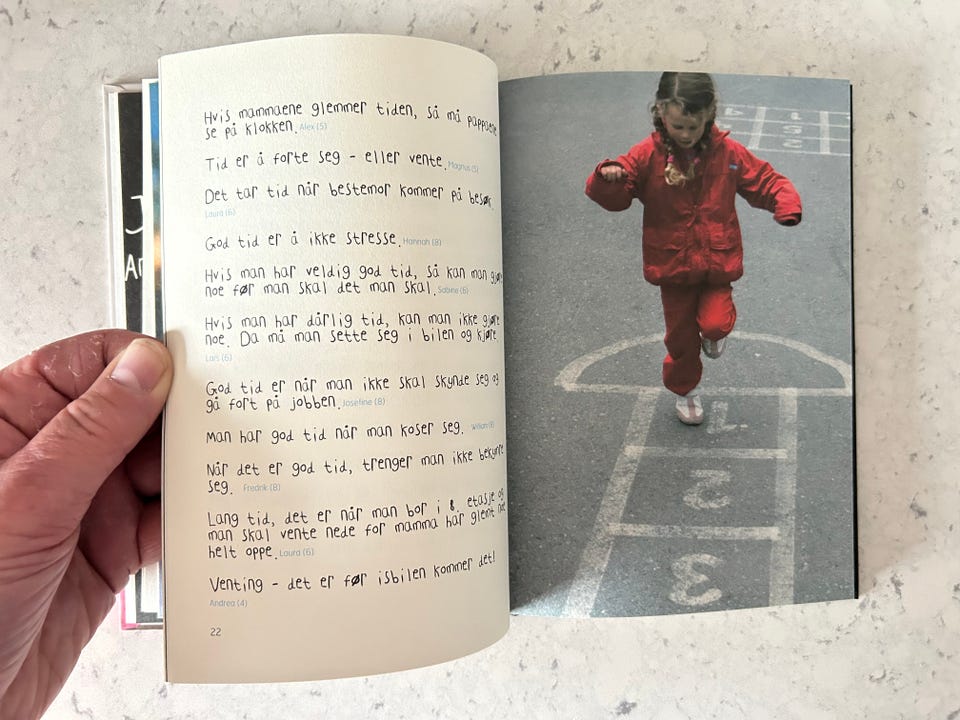 Hvis mammaene glemmer tiden, så må pappaene
se på klokken. Alex (5)
Tid er å forte seg - eller vente. Magnus (5)
Det tar tid når bestemor kommer på besøk.
Laura (6)
God tid er å ikke stresse. Hannah (8)
Hvis man har veldig god tid, så kan man gjøre
noe før man skal det man skal. Sabine (6)
Hvis man har dårlig tid, kan man ikke gjøre
noe. Da må man sette seg i bilen og kjøre.
Lars (6)
God tid er når man ikke skal skynde seg og
gå fort på jobben. Josefine (8)
Man har god tid når man koser seg. William (8)
Når det er god tid, trenger man ikke bekymre
seg. Fredrik (8)
Lang tid, det er når man bor i 8. etasje og
man skal vente nede for mamma har glemt noe
helt oppe. Laura (6)
Venting - det er før isbilen kommer det!
Andrea (4)
22
J
Ar
4
5
2
1
2
3